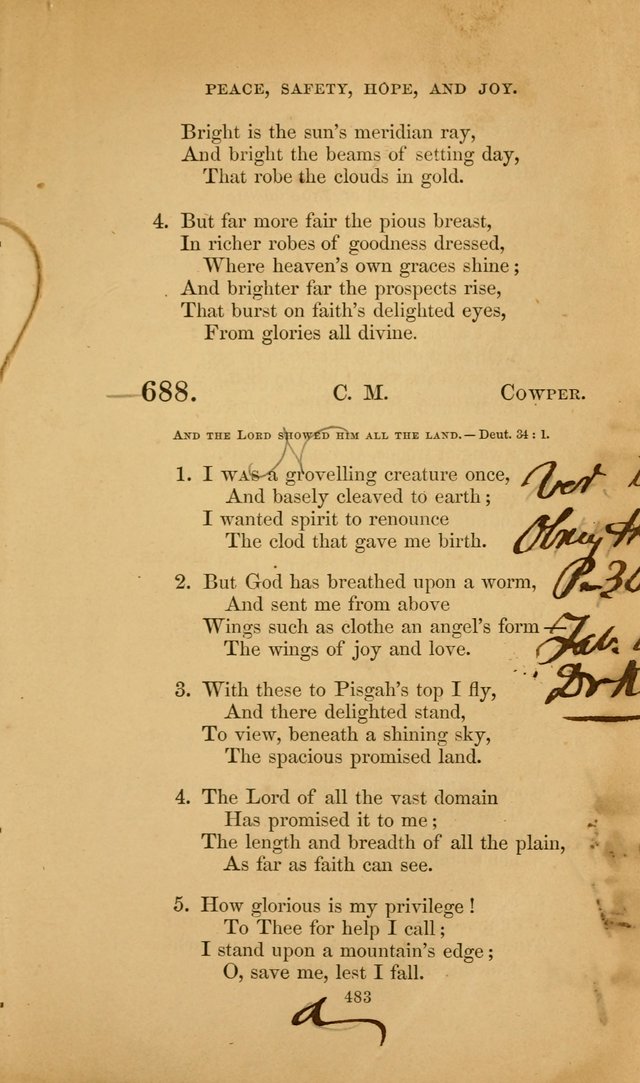 PEACE, SAFETY, HOPE, AND JOY.
Bright is the sun's meridian ray,
And bright the beams of setting day,
That robe the clouds in gold.
4. But far more fair the pious breast,
In richer robes of goodness dressed,
Where heaven's own graces shine;
And brighter far the prospects rise,
That burst on faith's delighted eyes,
From glories all divine.
688. C. M. COWPER.
AND THE LORD SHOWED HIM ALL THE LAND.—Deut. 34: 1.
1. I was a grovelling creature once,
And basely cleaved to earth;
I wanted spirit to renounce
The clod that gave me birth.
2. But God has breathed upon a worm,
And sent me from above
Wings such as clothe an angel's form—
The wings of joy and love.
3. With these to Pisgah's top I fly,
And there delighted stand,
To view, beneath a shining sky,
The spacious promised land.
4. The Lord of all the vast domain
Has promised it to me;
The length and breadth of all the plain,
As far as faith can see.
5. How glorious is my privilege!
To Thee for help I call;
I stand upon a mountain's edge;
O, save me, lest I fall.
483
Olney